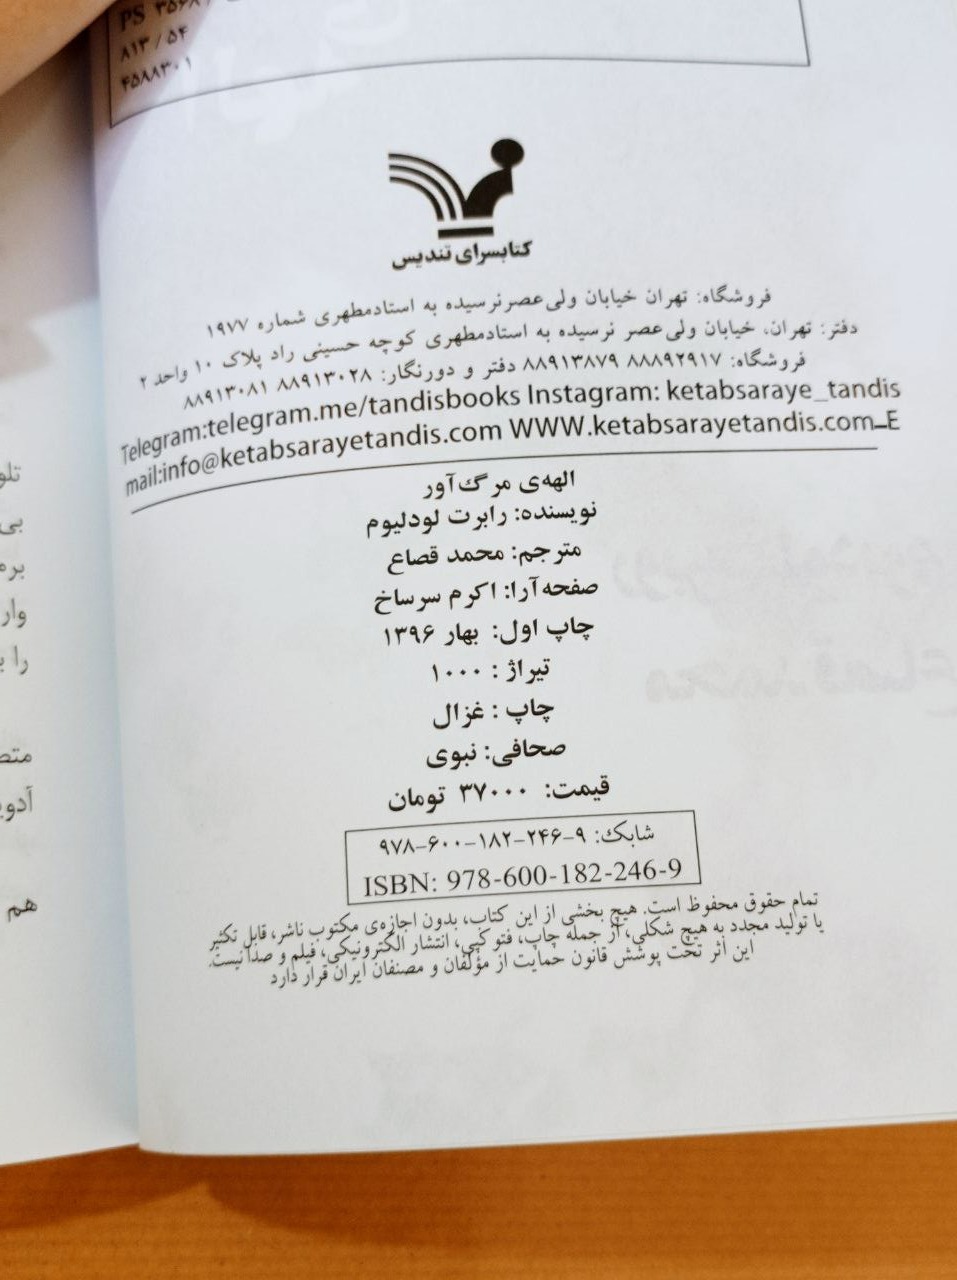 PS ۳۵۶۸
۸۱۳ / ۵۴
۴۵۸۸۳۰۱
کتابسرای تندیس
فروشگاه: تهران خیابان ولی‌عصر نرسیده به استاد مطهری شماره ۱۹۷۷
دفتر: تهران، خیابان ولی‌عصر نرسیده به استاد مطهری کوچه حسینی راد پلاک ۱۰ واحد ۲
فروشگاه: ۸۸۸۹۲۹۱۷ ۸۸۹۱۳۸۷۹ دفتر و دورنگار: ۸۸۹۱۳۰۲۸ ۸۸۹۱۳۰۸۱
Telegram:telegram.me/tandisbooks Instagram: ketabsaraye_tandis
mail:info@ketabsarayetandis.com WWW.ketabsarayetandis.com_E
الهه‌ی مرگ‌آور
نویسنده: رابرت لودلیوم
مترجم: محمد قصاع
صفحه‌آرا: اکرم سرساخ
چاپ اول: بهار ۱۳۹۶
تیراژ : ۱۰۰۰
چاپ : غزال
صحافی: نبوی
قیمت: ۳۷۰۰۰ تومان
شابک: ۹-۲۴۶-۱۸۲-۶۰۰-۹۷۸
ISBN: 978-600-182-246-9
تمام حقوق محفوظ است. هیچ بخشی از این کتاب، بدون اجازه‌ی مکتوب ناشر، قابل تکثیر
یا تولید مجدد به هیچ شکلی، از جمله چاپ، فتوکپی، انتشار الکترونیکی، فیلم و صدا نیست.
این اثر تحت پوشش قانون حمایت از مؤلفان و مصنفان ایران قرار دارد
را
هم